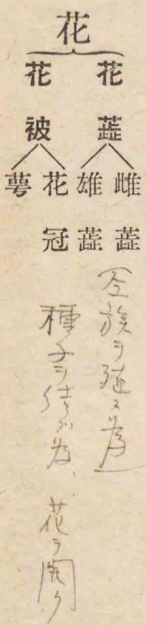 花
花蕋
花被
雌蕋
雄蕋
花冠
萼
仝族ヲ殖ス為
種子ヲ結ブ為、花ヲ開ク